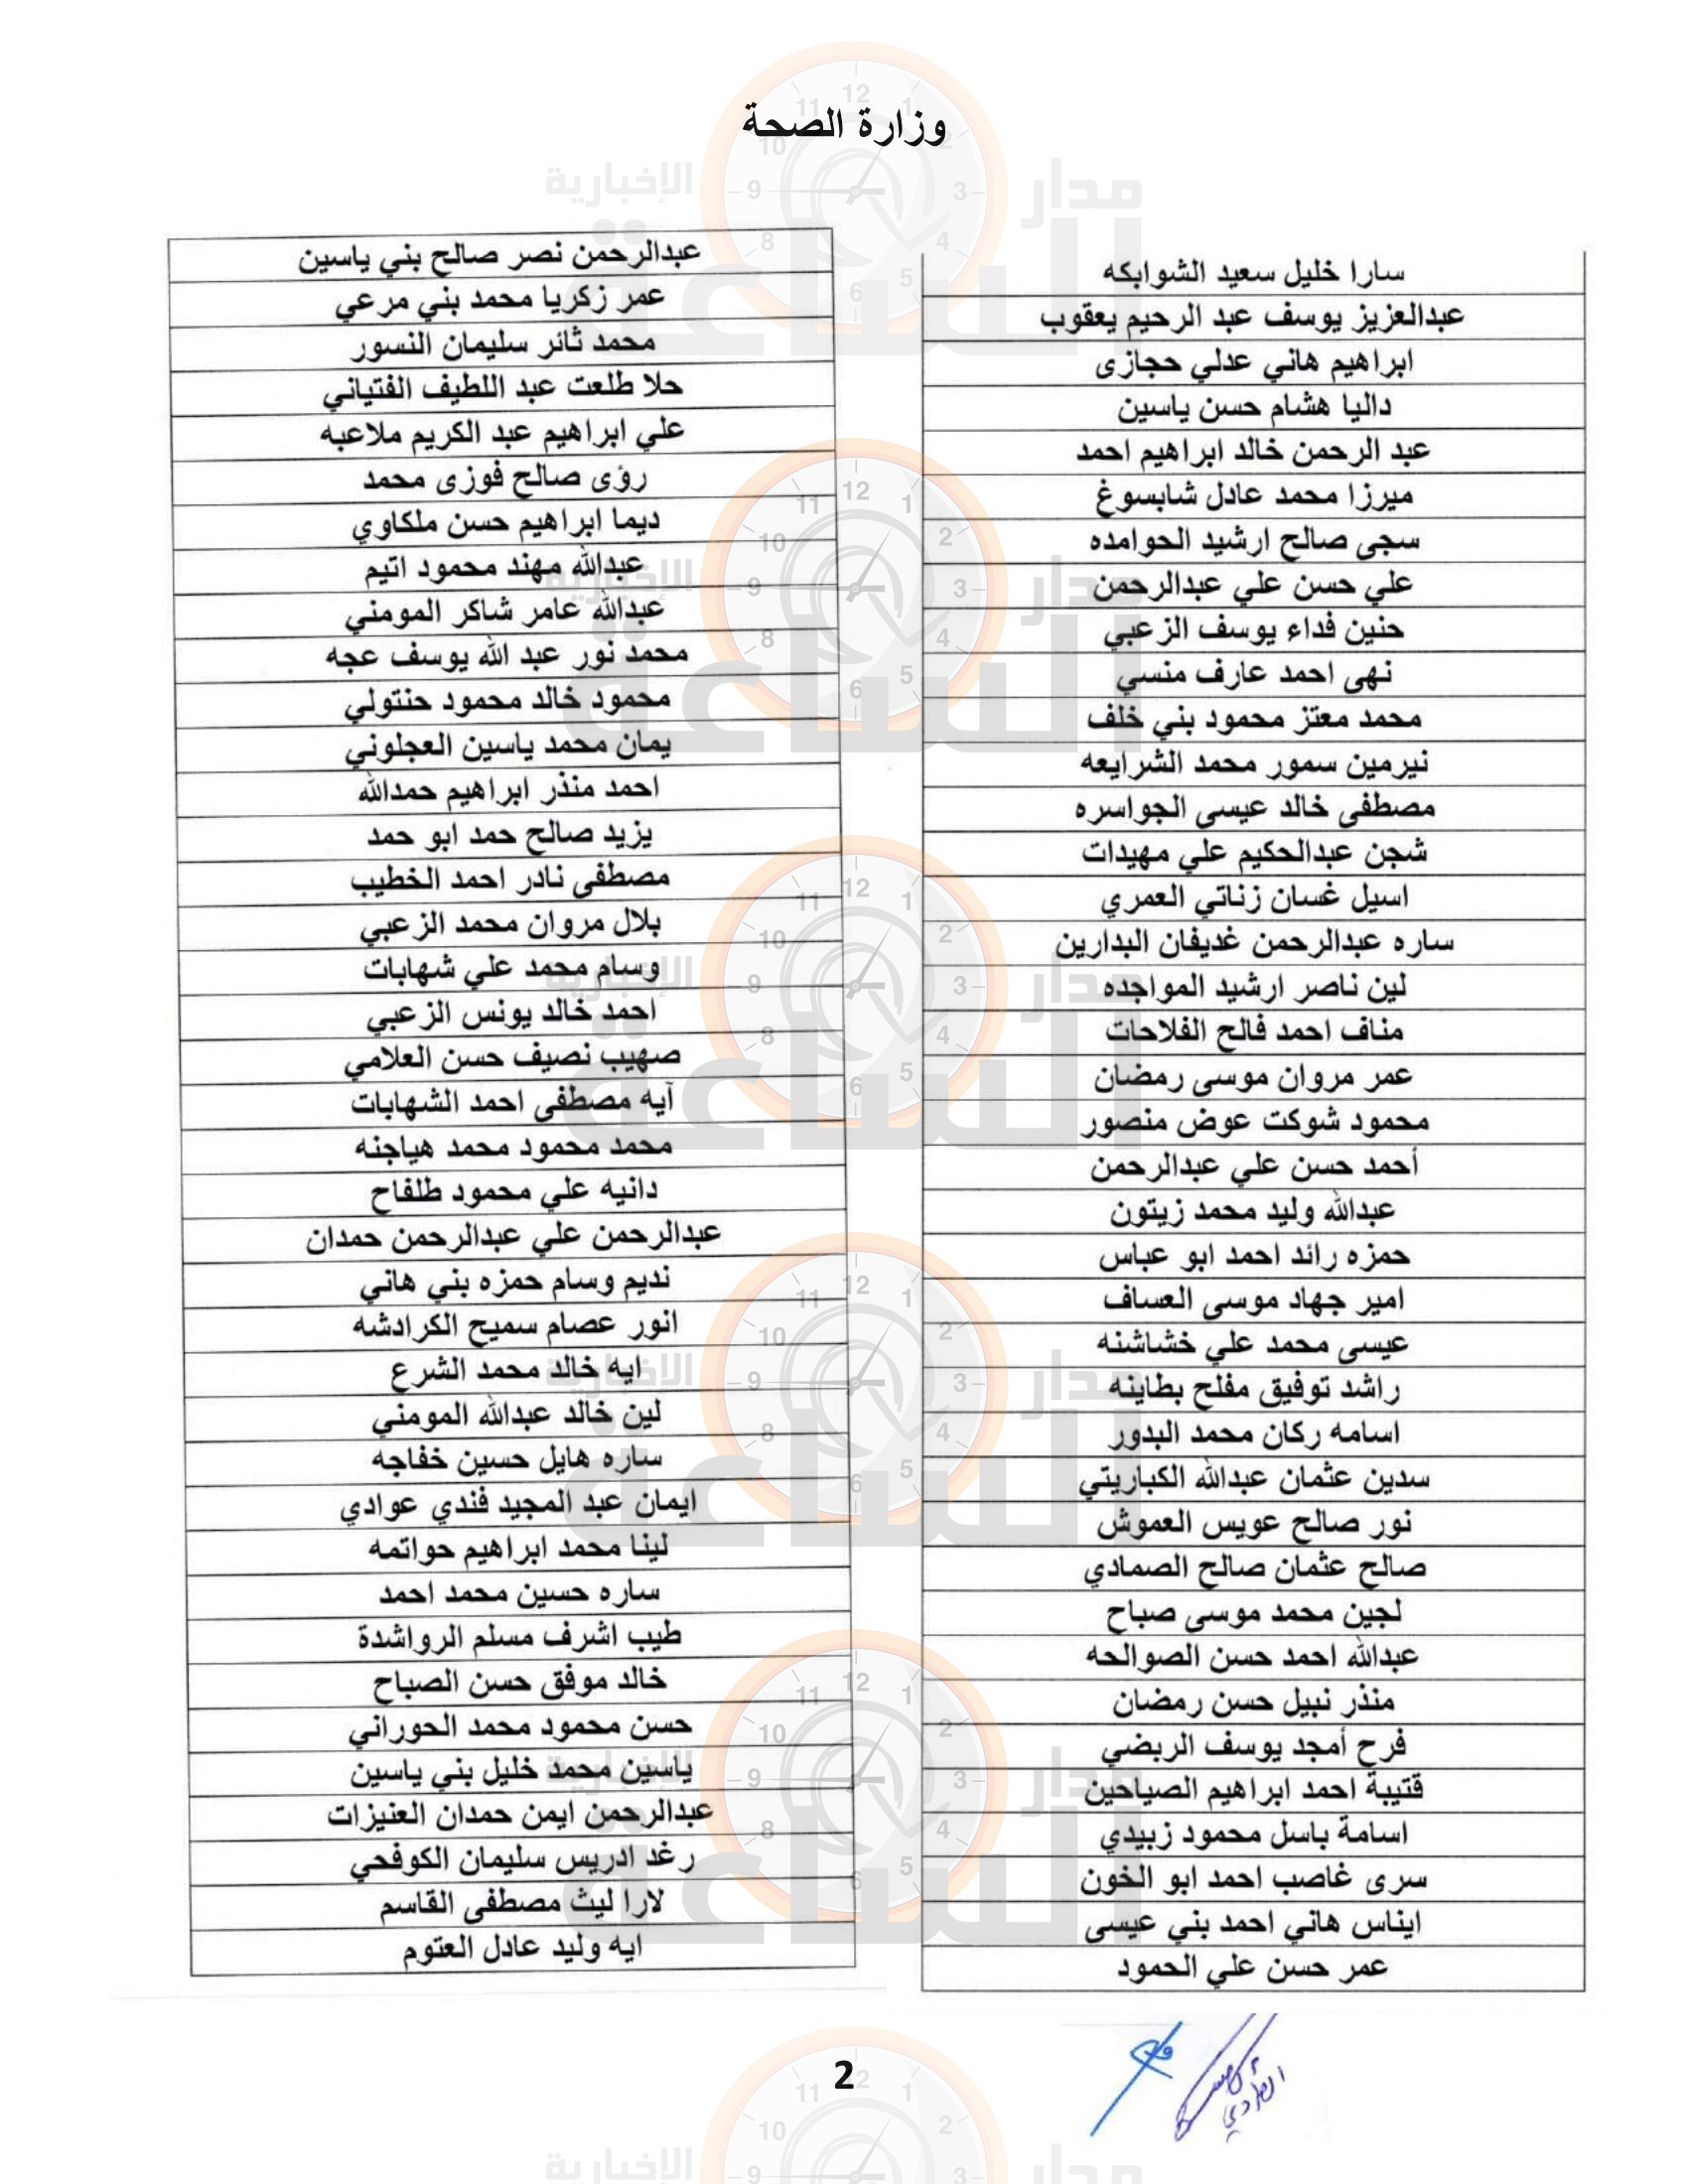 وزارة الصحة
سارا خليل سعيد الشوابكه
عبدالعزيز يوسف عبد الرحيم يعقوب
ابراهيم هاني عدلي حجازى
داليا هشام حسن ياسين
عبد الرحمن خالد ابراهيم احمد
ميرزا محمد عادل شابسوغ
سجى صالح ارشيد الحوامده
علي حسن علي عبدالرحمن
حنين فداء يوسف الزعبي
نهى احمد عارف منسي
محمد معتز محمود بني خلف
نيرمين سمور محمد الشرايعه
مصطفى خالد عيسى الجواسره
شجن عبدالحكيم علي مهيدات
اسيل غسان زناتي العمري
ساره عبدالرحمن غديفان البدارين
لين ناصر ارشيد المواجده
مناف احمد فالح الفلاحات
عمر مروان موسى رمضان
محمود شوكت عوض منصور
أحمد حسن علي عبدالرحمن
عبدالله وليد محمد زيتون
حمزه رائد احمد ابو عباس
امير جهاد موسى العساف
عيسى محمد علي خشاشنه
راشد توفيق مفلح بطاينه
اسامه ركان محمد البدور
سدين عثمان عبدالله الكباريتي
نور صالح عويس العموش
صالح عثمان صالح الصمادي
لجين محمد موسى صباح
عبدالله احمد حسن الصوالحه
منذر نبيل حسن رمضان
فرح أمجد يوسف الربضي
قتيبة احمد ابراهيم الصياحين
اسامة باسل محمود زبيدي
سرى غاصب احمد ابو الخون
ايناس هاني احمد بني عيسى
عمر حسن علي الحمود
عبدالرحمن نصر صالح بني ياسين
عمر زكريا محمد بني مرعي
محمد ثائر سليمان النسور
حلا طلعت عبد اللطيف الفتياني
علي ابراهيم عبد الكريم ملاعبه
رؤى صالح فوزى محمد
ديما ابراهيم حسن ملكاوي
عبدالله مهند محمود اتيم
عبدالله عامر شاكر المومني
محمد نور عبد الله يوسف عجه
محمود خالد محمود حنتولي
يمان محمد ياسين العجلوني
احمد منذر ابراهيم حمدالله
يزيد صالح حمد ابو حمد
مصطفى نادر احمد الخطيب
بلال مروان محمد الزعبي
وسام محمد علي شهابات
احمد خالد يونس الزعبي
صهيب نصيف حسن العلامي
آيه مصطفى احمد الشهابات
محمد محمود محمد هياجنه
دانيه علي محمود طلفاح
عبدالرحمن علي عبدالرحمن حمدان
نديم وسام حمزه بني هاني
انور عصام سميح الكرادشه
ايه خالد محمد الشرع
لين خالد عبدالله المومني
ساره هايل حسين خفاجه
ايمان عبد المجيد فندي عوادي
لينا محمد ابراهيم حواتمه
ساره حسين محمد احمد
طيب اشرف مسلم الرواشدة
خالد موفق حسن الصباح
حسن محمود محمد الحوراني
ياسين محمد خليل بني ياسين
عبدالرحمن ايمن حمدان العنيزات
رغد ادريس سليمان الكوفحي
لارا ليث مصطفى القاسم
ايه وليد عادل العتوم
2